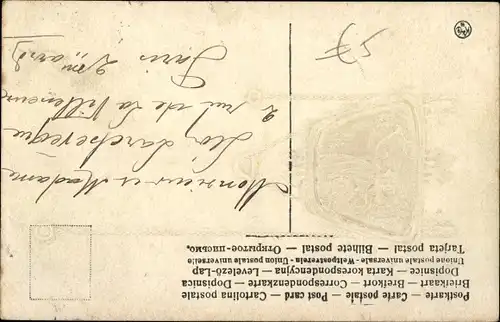 Postkarte — Carte postale — Post card — Cartolina postale
Brierkaart — Brefkort — Correspondenzkarte — Dopisnica
Dopisnice — Karta korespondencyjna — Levelező-Lap
Unione postale universale - Weltpostverein - Union postale universelle
Tarjeta postal — Bilhete postal — Открытое письмо.
Monsieur et Madame
2 rue de la Villeneuve
Paris 2
57